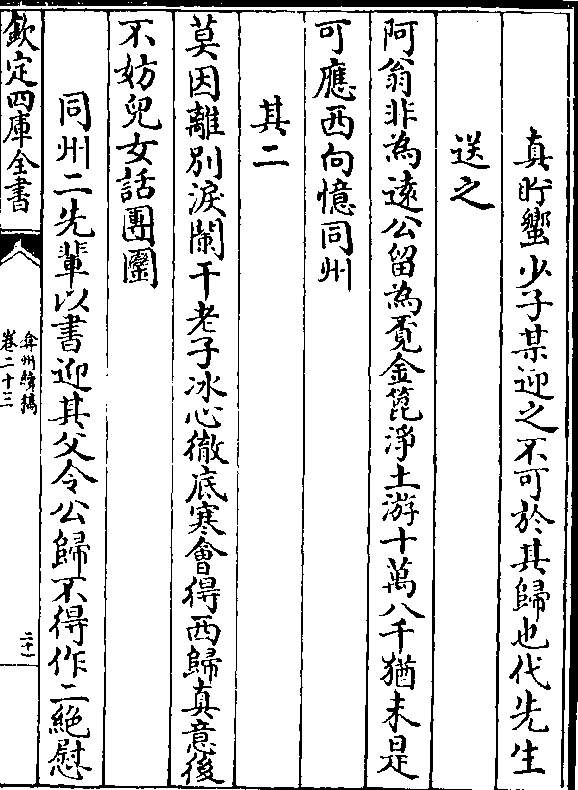 真貯蠻少子某迎之不可於其歸也代先生
送之
阿翁非為遠公留為覓金篦淨土游十萬八千猶未是
可應西向憶同州
其二
莫因離別淚闌干老子冰心徹底寒會得西歸真意後
不妨兒女話團圞
同州二先輩以書迎其父令公歸不得作二絶慰
欽定四庫全書
弇州續稿
卷二十三
二十一